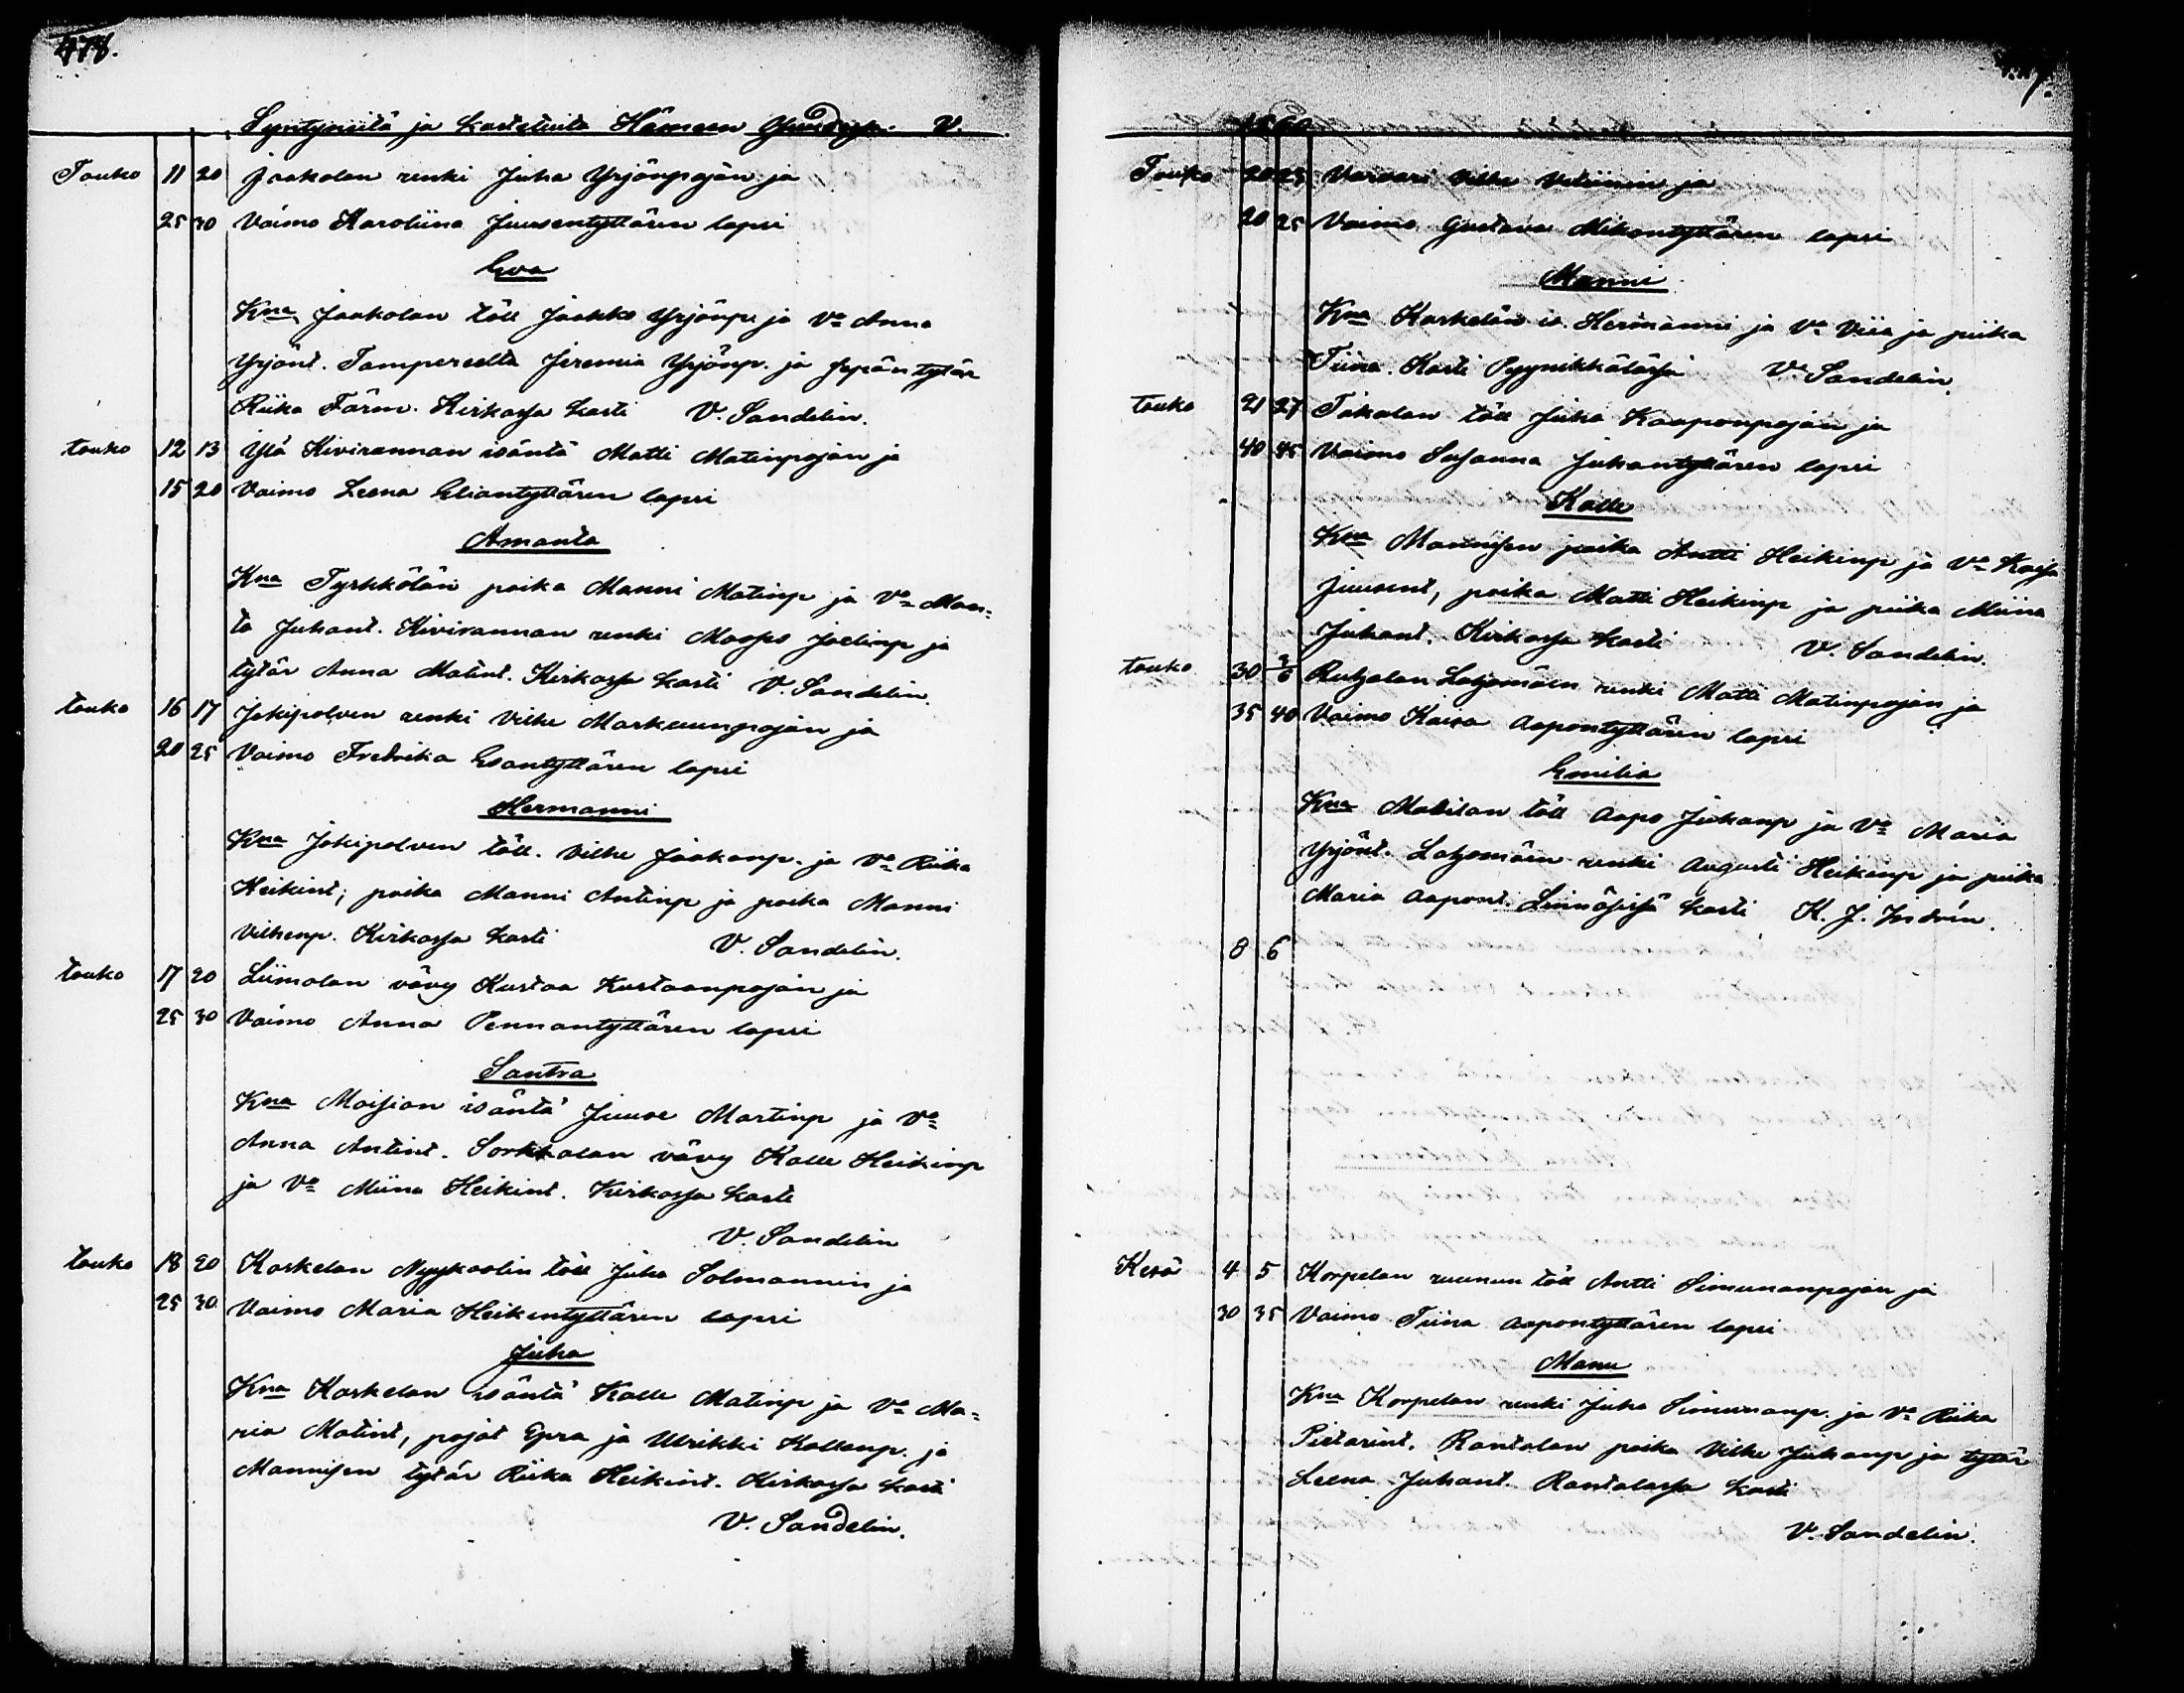 478.
Syntyneitä ja kastetuita Hämeen V.
Touko 11 20 Jaakolan renki Juha Yrjönpojan ja
25 30 Vaimo Karoliina Juusentyttären lapsi
Eva
Kna Jaakolan töll Jaakko Yrjönp. ja Va Anna
Yrjönt. Tampereelta Jeremia Yrjönp. ja sepän tytär
Riika Färm. Kirkossa kasti V. Sandelin.
touko 12 13 Ylä Kivirannan isäntä Matti Matinpojan ja
15 20 Vaimo Leena Eliantyttären lapsi
Amanta
Kna Tyrkkölän poika Manni Matinp ja Va Man-
ta Juhant. Kivirannan renki Maops Joelinp ja
tytär Anna Matint. Kirkossa kasti V. Sandelin.
touko 16 17 Jokipolven renki Vilhe Markuunpojan ja
20 25 Vaimo Fredrika Esantyttären lapsi
Hermanni
Kna Jokipolven töll. Vilhe Jaakonp. ja Va Riika
Heikint; poika Manni Antinp ja poika Manni
Vilhenp. Kirkossa kasti V. Sandelin.
touko 17 20 Liimolan vävy Kustaa Kustaanpojan ja
25 30 Vaimo Anna Pennantyttären lapsi
Santra
Kna Moisian isäntä Juuse Martinp ja Va
Anna Antint. Sorkkalan vävy Kalle Heikinp
ja Va Miina Heikint. Kirkossa kasti
V. Sandelin
touko 18 20 Koskelan Nyykoolin töll Juha Solmannin ja
25 30 Vaimo Maria Heikintyttären lapsi
Juha
Kna Koskelan isäntä Kalle Matinp ja Va Ma-
ria Matint, pojat Epra ja Ulrikki Kallenp. ja
Mannisen tytär Riika Heikint. Kirkossa kasti
V. Sandelin.
Touko 20 23 Varvari Vilhe Veliinin ja
20 25 Vaimo Gustava Mikontyttären lapsi
Manni
Kna Koskelan is. Hermanni ja Va Viia ja piika
Tiina. Kasti Pyynikkälässä V. Sandelin
touko 21 27 Takalan töll Juha Kaaponpojan ja
40 45 Vaimo Susanna Juhantyttären lapsi
Kalle
Kna Mannisen poika Antti Heikinp ja Va Kaisa
Juusent, poika Matti Heikinp ja piika Miina
Juhant. Kirkossa kasti V. Sandelin.
touko 30 3/6 Ruhalan Latjomäen renki Matti Matinpojan ja
35 40 Vaimo Kaisa Aapontyttären lapsi
Emilia
Kna Mattilan töll Aapo Juhanp ja Va Maria
Yrjönt. Latjomäen renki Augusti Heikinp ja piika
Maria Aapont. kasti K. J.
8 6
Kesä 4 5 Korpelan ruunun töll Antti Simunanpojan ja
30 35 Vaimo Tiina Aapontyttären lapsi
Manu
Kna Korpelan renki Juha Simunanp. ja Va Riika
Pietarint. Rantalan poika Vilhe Juhanp ja tytär
Leena Juhant. Rantalassa kasti
V. Sandelin.